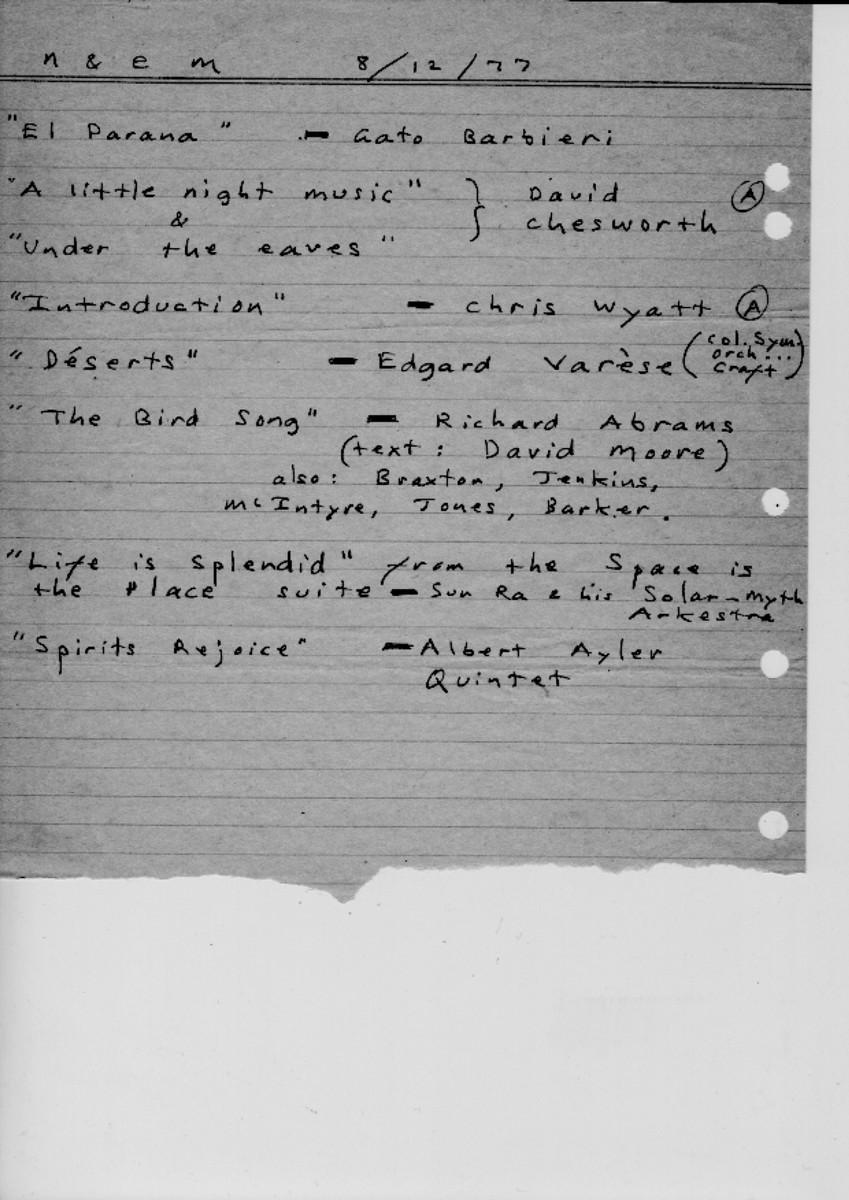 n & e m 8/12/77
"El Parana" - Gato Barbieri
"A little night music" } David Ⓐ
& Chesworth
"Under the eaves"
"Introduction" - Chris Wyatt Ⓐ
"Déserts" - Edgard Varèse (Col. Sym.
Orch...
Craft)
"The Bird Song" - Richard Abrams
(text: David Moore)
also: Braxton, Jenkins,
McIntyre, Jones, Barker.
"Life is splendid" from the Space is
the Place suite - Sun Ra & his Solar-Myth
Arkestra
"Spirits Rejoice" - Albert Ayler
Quintet